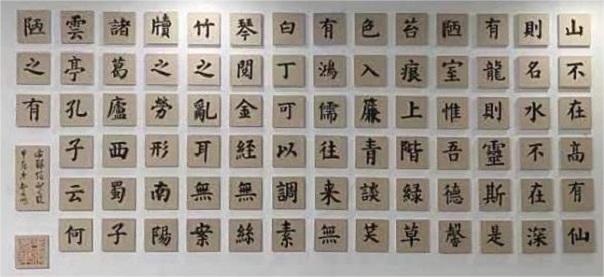 山不在高有仙
則名水不在深
有龍則靈斯是
陋室惟吾德馨
苔痕上階緑草
色入簾青談笑
有鴻儒往來無
白丁可以調素
琴閱金経無絲
竹之亂耳無案
牘之勞形南陽
諸葛廬西蜀子
雲亭孔子云何
陋之有